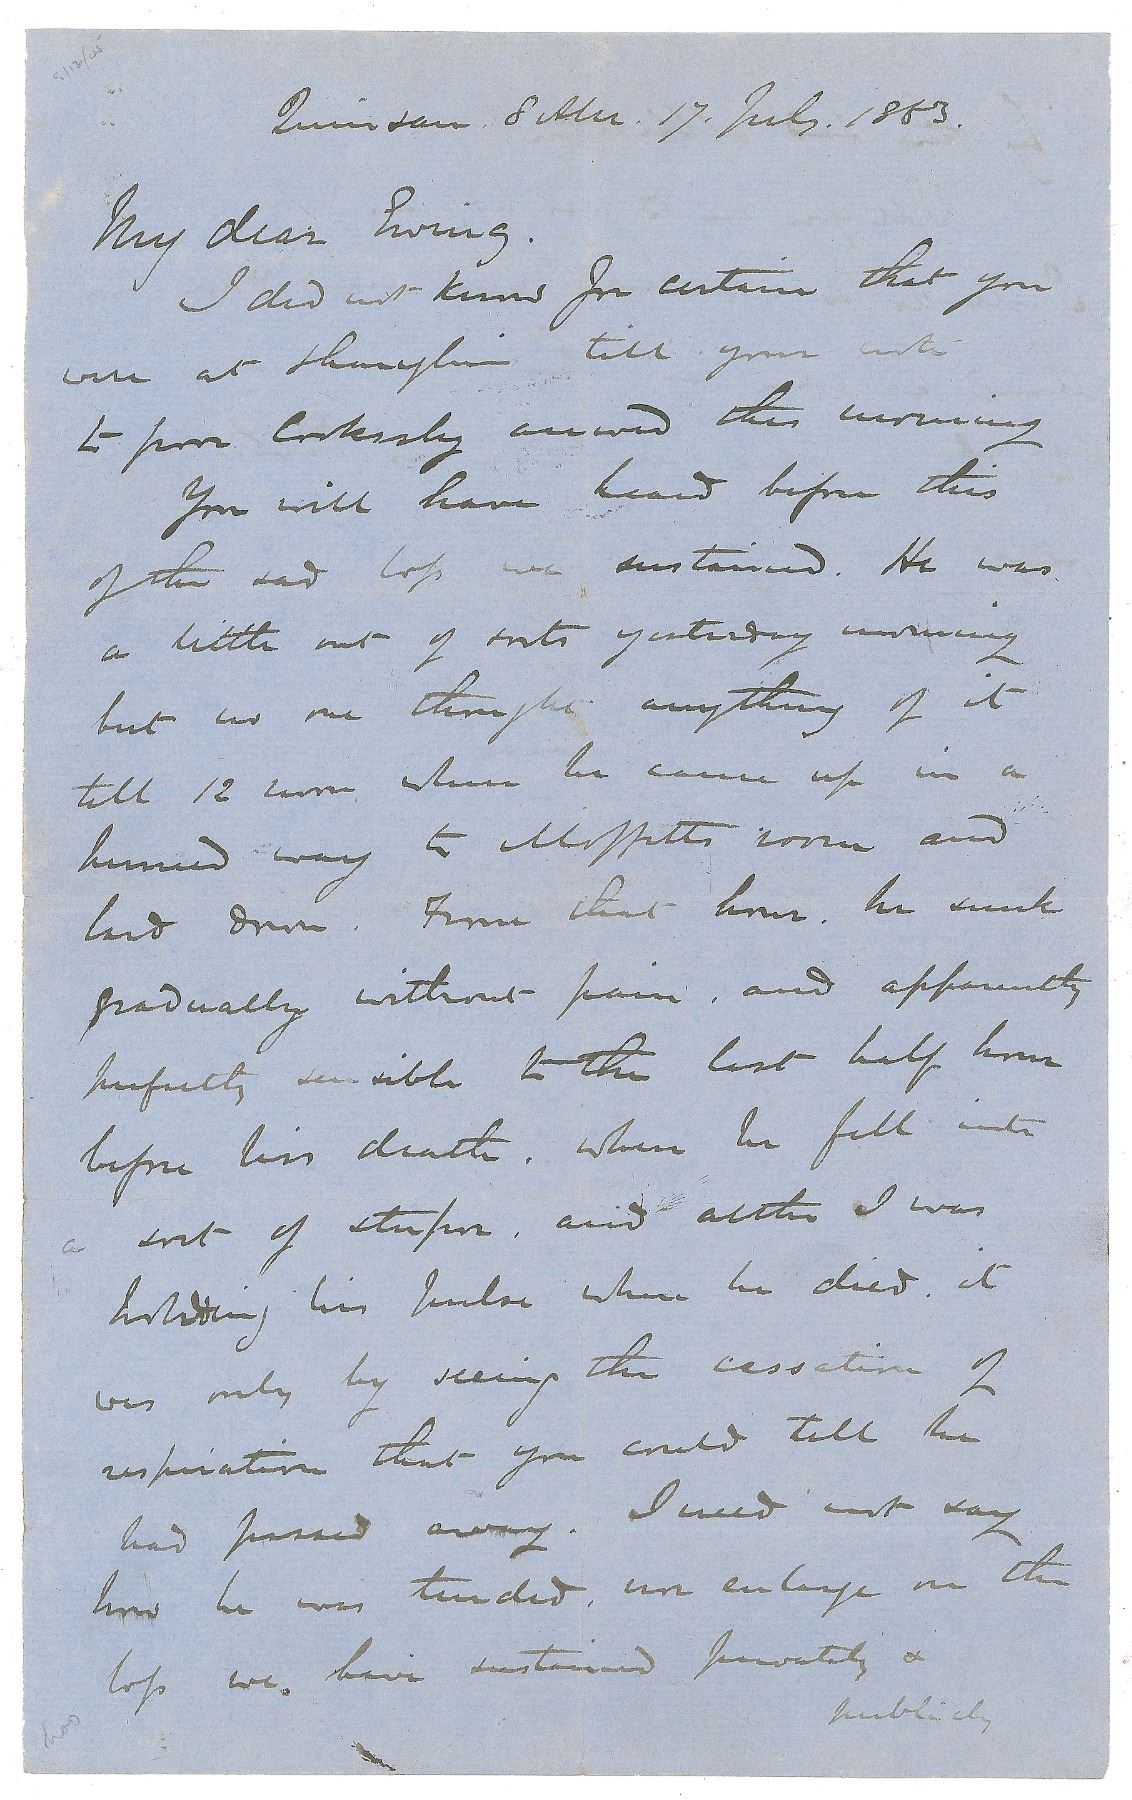 Quinsan. 8 AM. 17. July. 1863.
My dear Ewing.
I did not know for certain that you
were at Shanghai till your note
to poor Cooksley arrived this morning
You will have heard before this
of the sad loss we sustained. He was
a little out of sorts yesterday morning
but no one thought anything of it
till 12 noon when he came up in a
hurried way to Moffitts room and
laid down. From that hour. he sunk
gradually without pain. and apparently
perfectly sensible to the last half hour
before his death. when he fell into
a sort of stupor. and altho I was
holding his pulse when he died. it
was only by seeing the cessation of
respiration that you could tell he
had passed away. I need not say
how he was tended. nor enlarge on the
loss we. have sustained privately &
publicly